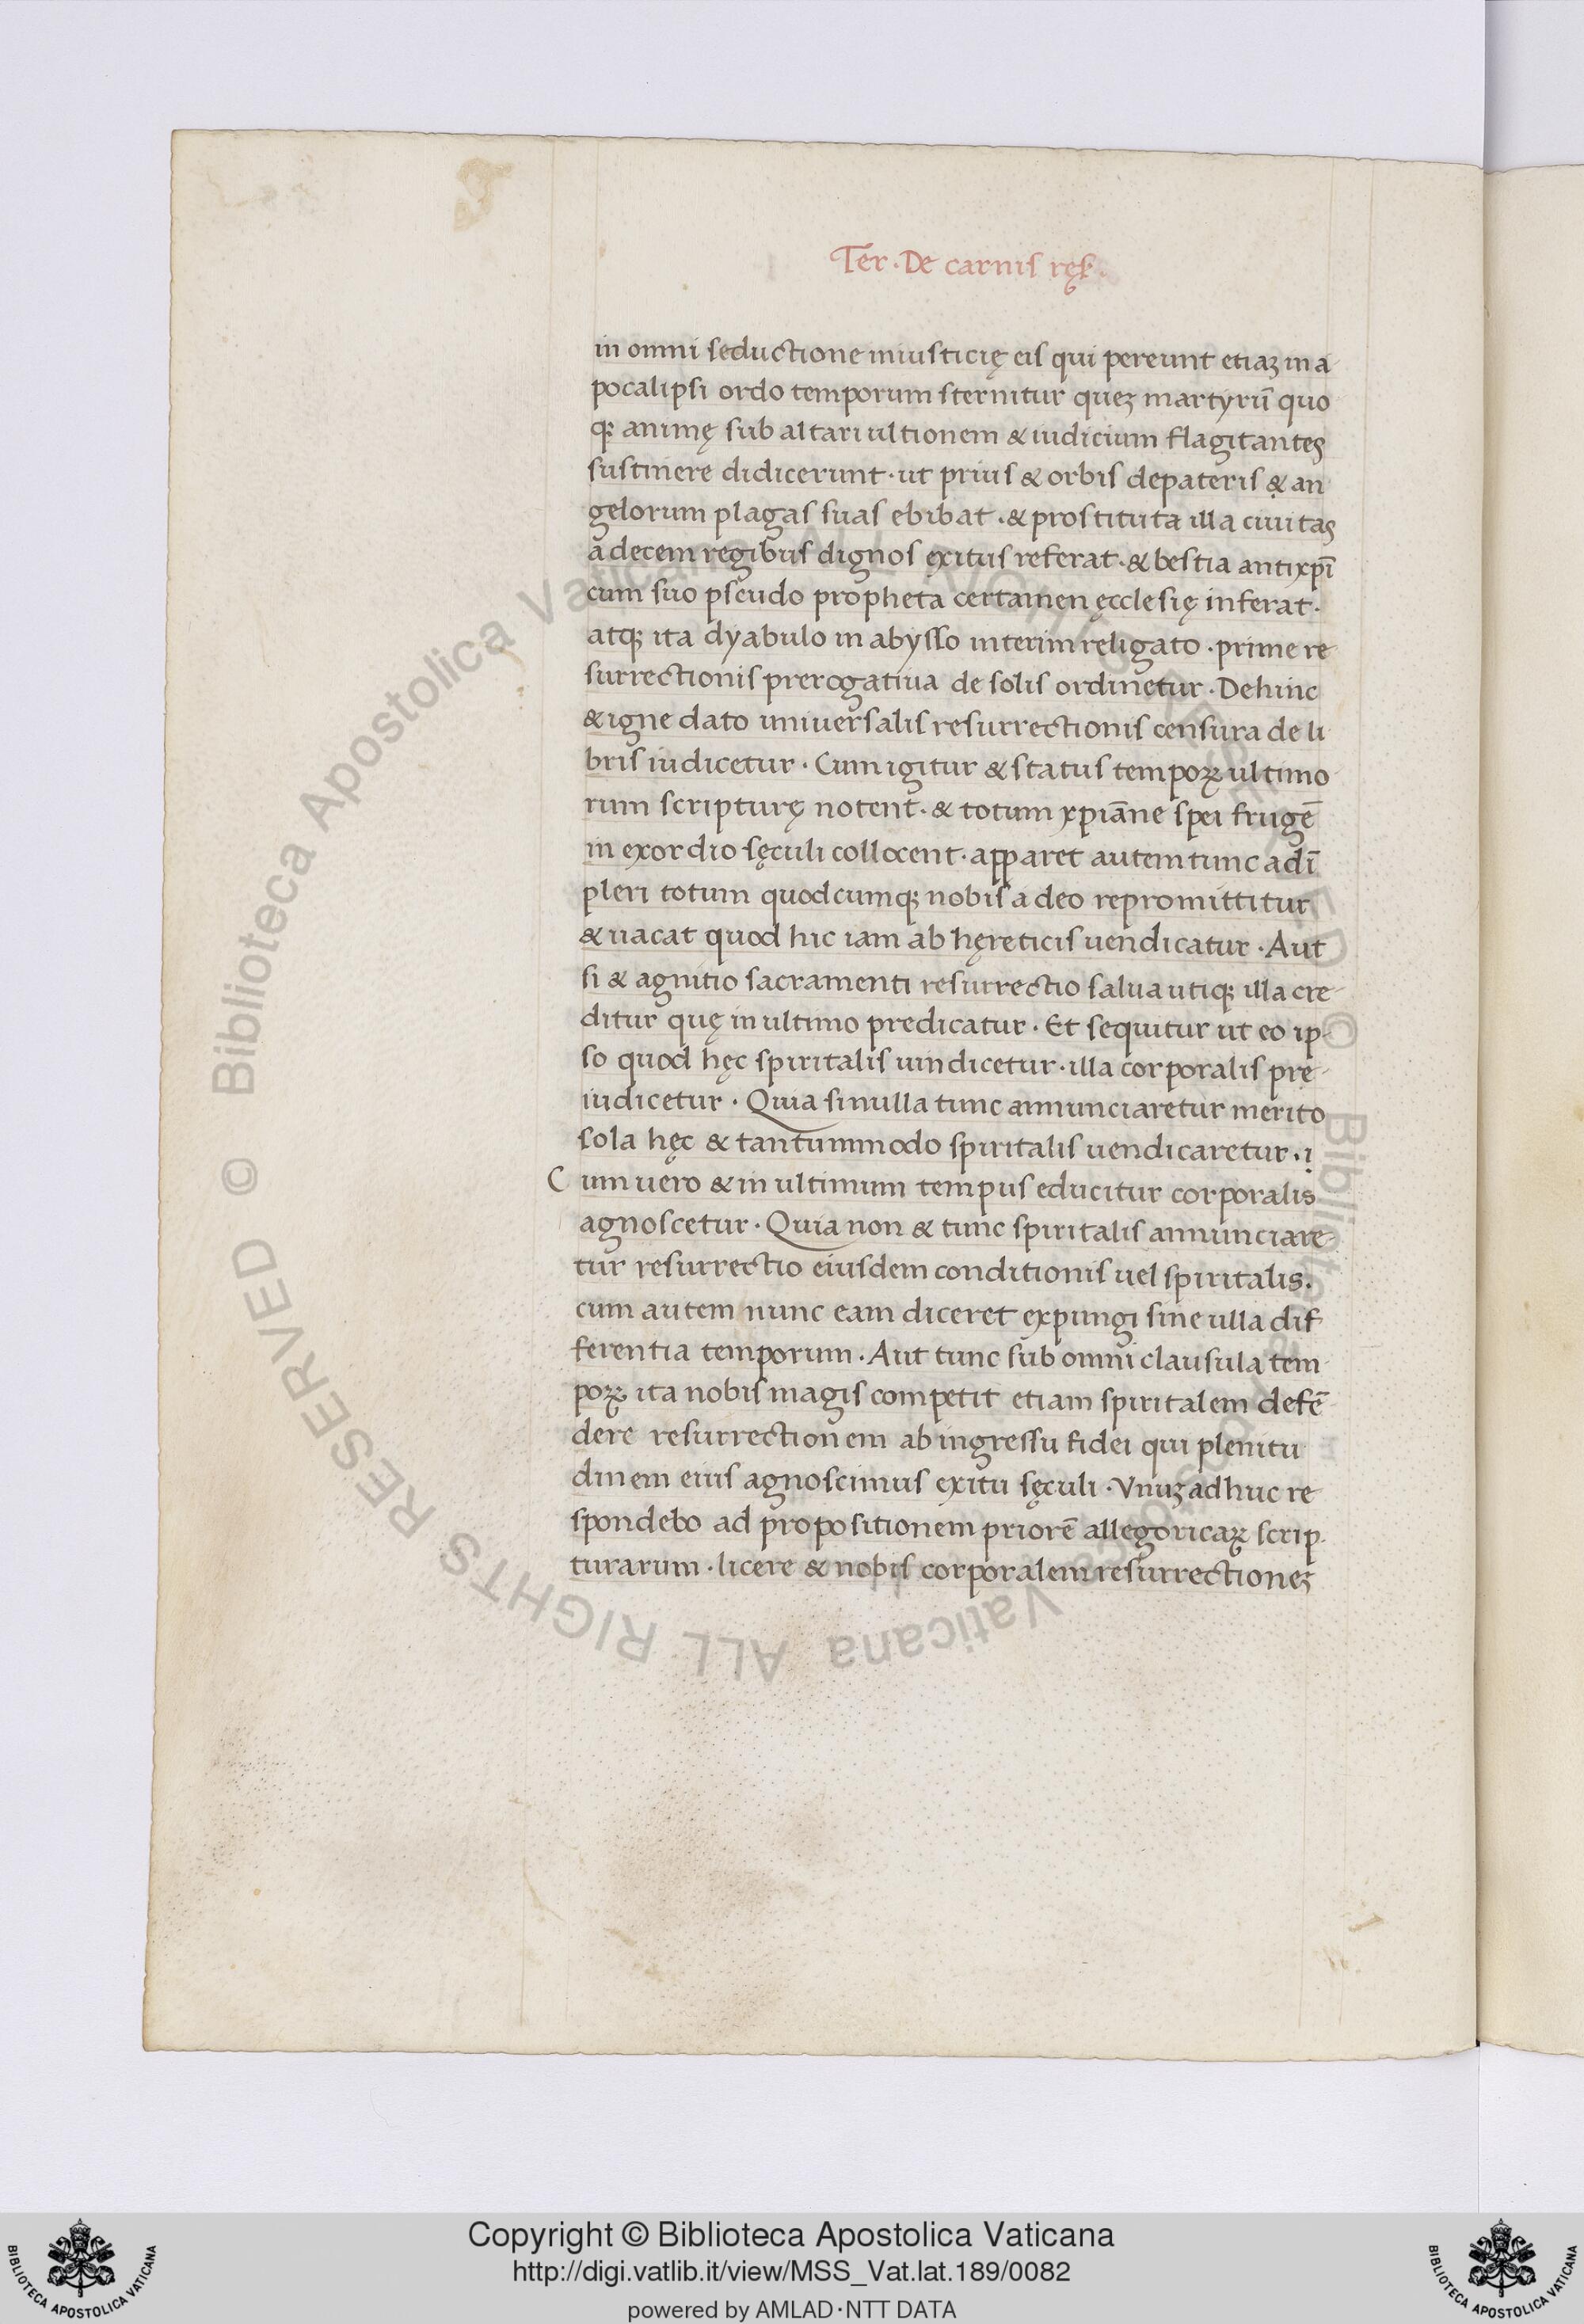 Ter. De carnis ręſ.
in omni seductione iniusticię eis qui pereunt etiaꝫ in a
pocalipsi ordo temporum sternitur queꝫ martyrū quo
qꝫ animę sub altari ultionem & iudicium flagitantes
sustinere didicerunt · ut prius & orbis depateris & an
gelorum plagas suas ebibat · & prostituta illa ciuitas
a decem regibus dignos exitus referat · & bestia antixp̄i
cum suo pseudo propheta certamen ęcclesię inferat ·
atqꝫ ita dyabulo in abysso interim religato · prime re
surrectionis prerogatiua de solis ordinetur · Dehinc
& igne dato uniuersalis resurrectionis censura de li
bris iudicetur · Cum igitur & status tempoꝝ ultimo
rum scripturę notent · & totum xp̄iane spei frugē
in exordio sęculi collocent · apparet autem tunc adī
pleri totum quodcumqꝫ nobis a deo repromittitur
& uacat quod hic iam ab hęreticis uendicatur · Aut
si & agnitio sacramenti resurrectio salua utiqꝫ illa cre-
ditur quę in ultimo predicatur · Et sequitur ut eo ip-
so quod hęc spiritalis uindicetur · illa corporalis prę-
iudicetur · Quia si nulla tunc annunciaretur merito
sola hęc & tantummodo spiritalis uendicaretur · i
C um uero & in ultimum tempus educitur corporalis
agnoscetur · Quia non & tunc spiritalis annunciare-
tur resurrectio eiusdem conditionis uel spiritalis.
cum autem nunc eam diceret expungi sine ulla dif-
ferentia temporum · Aut tunc sub omni clausula tem
poꝝ ita nobis magis competit etiam spiritalem defē-
dere resurrectionem ab ingressu fidei qui plenitu
dinem eius agnoscimus exitu sęculi · Vnuꝫ adhuc re
spondebo ad propositionem priorē allegoricaꝝ scrip-
turarum · licere & nobis corporalem resurrectioneꝫ
© Biblioteca Apostolica Vaticana ALL RIGHTS RESERVED © Biblioteca Apostolica Vaticana ALL RIGHTS RESERVED
Copyright © Biblioteca Apostolica Vaticana
http://digi.vatlib.it/view/MSS_Vat.lat.189/0082
powered by AMLAD·NTT DATA
BIBLIOTECA APOSTOLICA VATICANA
BIBLIOTECA APOSTOLICA VATICANA